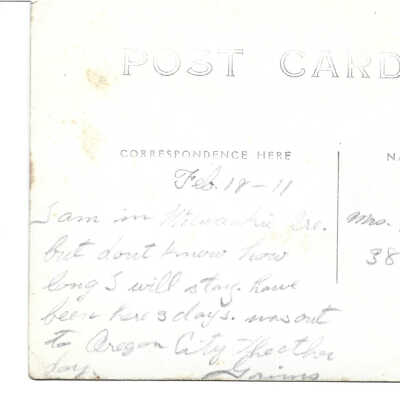 POST CARD
CORRESPONDENCE HERE
NA
Feb. 18-11
I am in Milwaukie Ore.
Mrs.
but dont know how
38
long I will stay. have
been here 3 days. was out
to Oregon City the other
day.